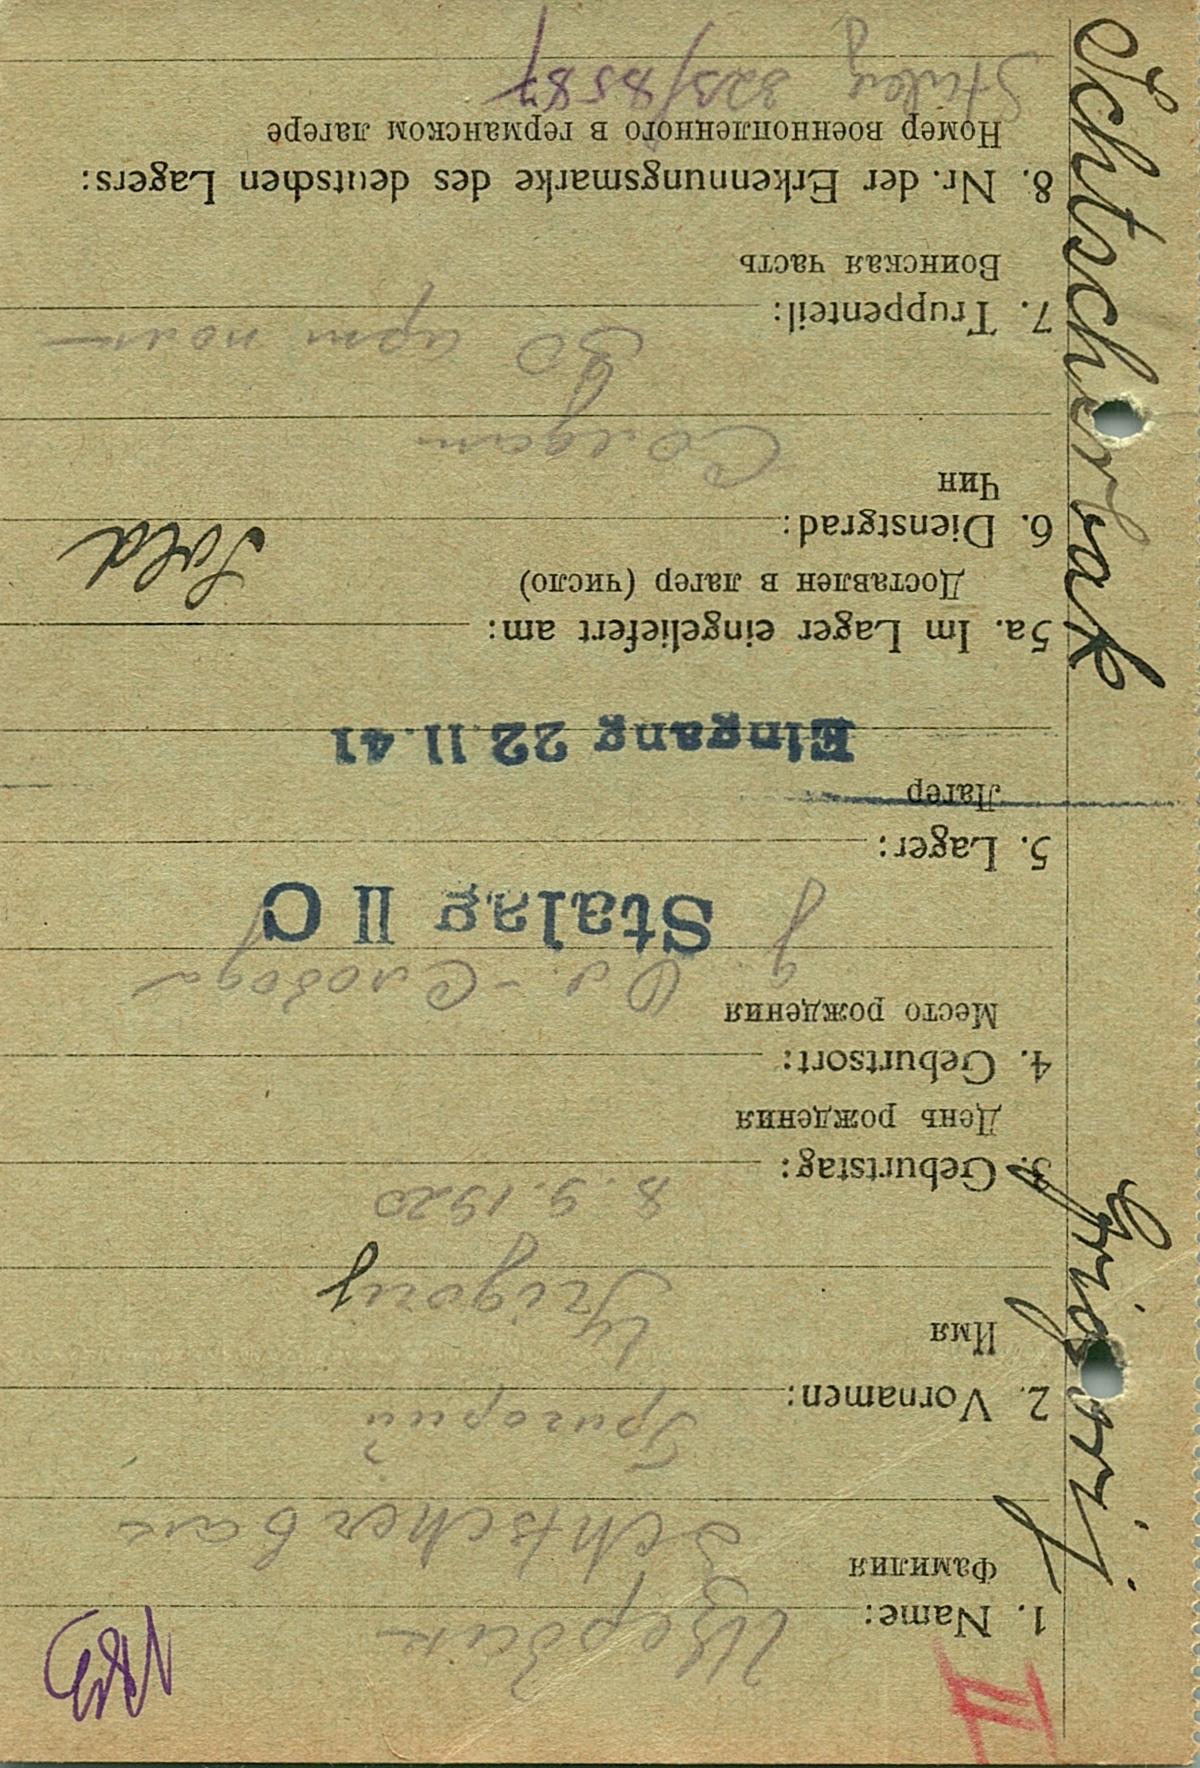 II
1. Name: Щербак
Фамилия
Schtscherbak
Григорий
2. Vornamen:
Имя
Grigorij
8.9.1920
3. Geburtstag:
День рождения
4. Geburtsort:
Место рождения
Слобода
Stalag II C
5. Lager:
Лагерь
Eingang 22.11.41
5a. Im Lager eingeliefert am:
Доставлен в лагерь (число)
Sold
6. Dienstgrad:
Чин
Солдат
90 арт полк
7. Truppenteil:
Воинская часть
8. Nr. der Erkennungsmarke des deutschen Lagers:
Номер военнопленного в германском лагере
Stalag 323/8587
Schtscherbak Grigorij